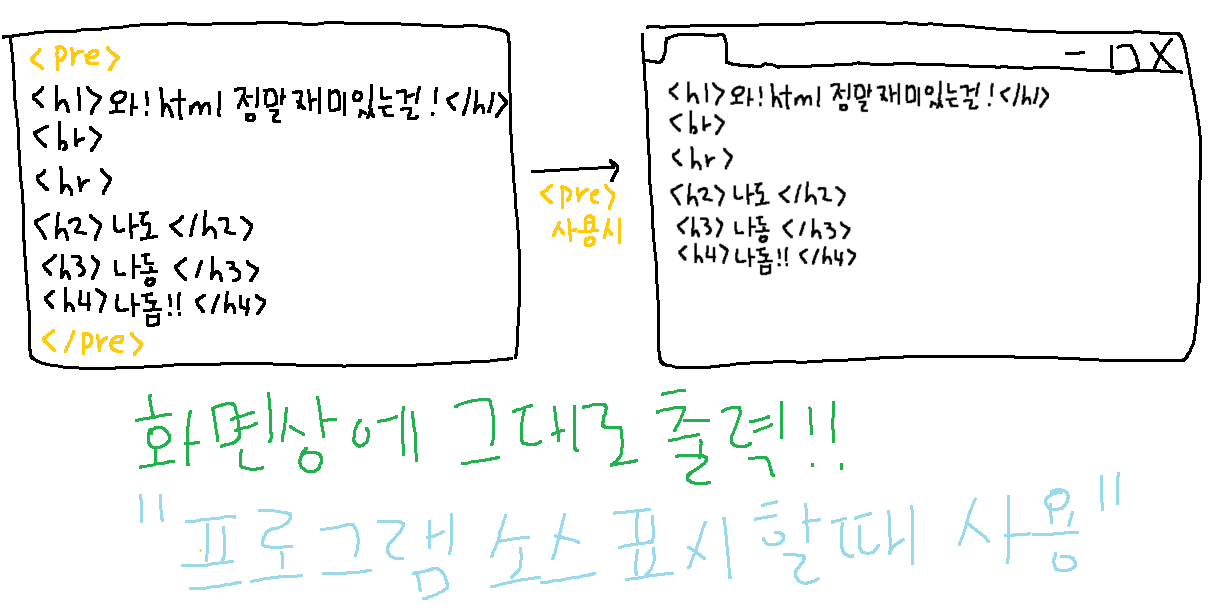 <pre>
<h1>와! html 정말 재미있는걸!</h1>
<br>
<hr>
<h2>나도 </h2>
<h3>나동 </h3>
<h4>나돔!! </h4>
</pre>
<pre>
사용시
- □ X
<h1>와! html 정말 재미있는걸!</h1>
<br>
<hr>
<h2>나도 </h2>
<h3>나동 </h3>
<h4>나돔!! </h4>
화면상에 그대로 출력!!
"프로그램 소스 표시 할때 사용"